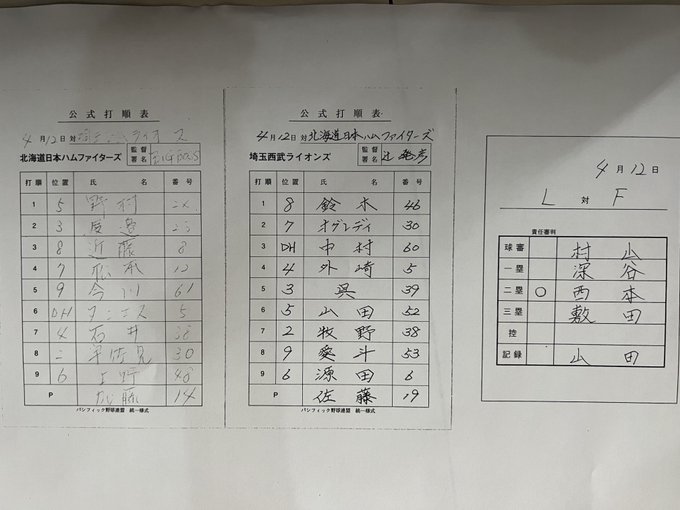 公式打順表
4月12日 対 埼玉西武ライオンズ
北海道日本ハムファイターズ 監督署名 BIGBOSS
打順 位置 氏名 番号
1 5 野村 24
2 3 渡邉 23
3 8 近藤 8
4 7 松本 12
5 9 今川 61
6 DH ヌニエス 5
7 4 石井 38
8 2 宇佐見 30
9 6 上野 48
P 加藤 14
パシフィック野球連盟 統一様式
公式打順表
4月12日 対 北海道日本ハムファイターズ
埼玉西武ライオンズ 監督署名 辻 発彦
打順 位置 氏名 番号
1 8 鈴木 46
2 7 オグレディ 30
3 DH 中村 60
4 4 外崎 5
5 3 呉 39
6 5 山田 52
7 2 牧野 38
8 9 愛斗 53
9 6 源田 6
P 佐藤 19
パシフィック野球連盟 統一様式
4月12日
L 対 F
責任審判
球審 村山
一塁 深谷
二塁 ○ 西本
三塁 敷田
控
記録 山田